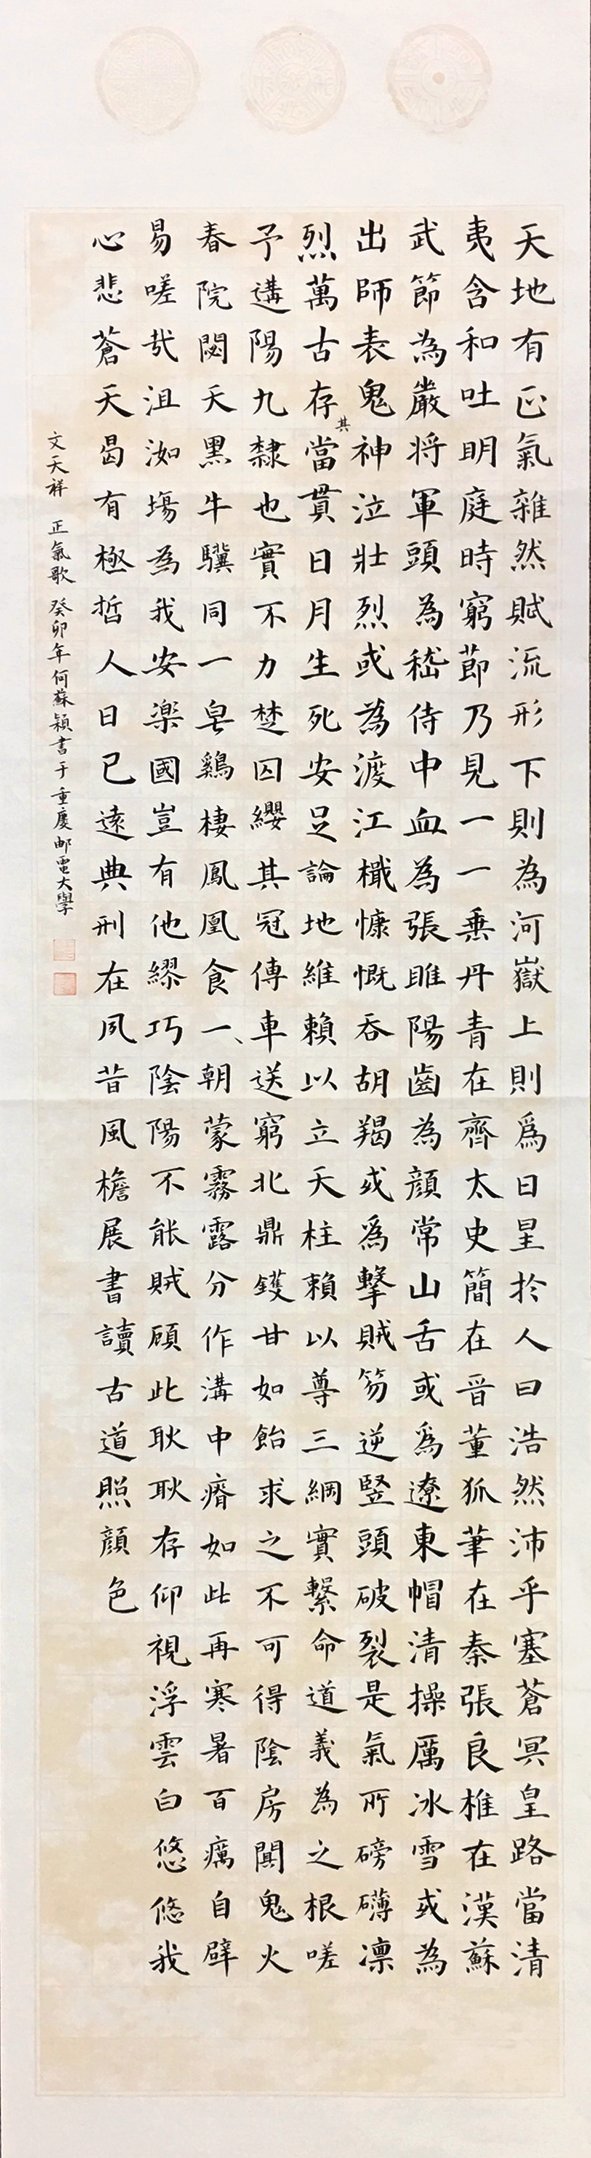 天地有正氣雜然賦流形下則為河嶽上則為日星於人曰浩然沛乎塞蒼冥皇路當清
夷含和吐明庭時窮節乃見一一垂丹青在齊太史簡在晋董狐筆在秦張良椎在漢蘇
武節為嚴将軍頭為嵇侍中血為張睢陽齒為顏常山舌或為遼東帽清操厲冰雪或為
出師表鬼神泣壯烈或為渡江檝慷慨吞胡羯或為擊賊笏逆豎頭破裂是氣所磅礴凛
烈萬古存其當貫日月生死安足論地維賴以立天柱賴以尊三綱實繫命道義為之根嗟
予遘陽九隸也實不力楚囚纓其冠傳車送窮北鼎鑊甘如飴求之不可得陰房闃鬼火
春院閟天黑牛驥同一皂鷄棲鳳凰食一朝蒙霧露分作溝中瘠如此再寒暑百癘自辟
易嗟哉沮洳場為我安樂國豈有他繆巧陰陽不能賊顧此耿耿存仰視浮雲白悠悠我
心悲蒼天曷有極哲人日已遠典刑在夙昔風檐展書讀古道照顏色
文天祥 正氣歌 癸卯年何蘇穎書于重慶邮電大學